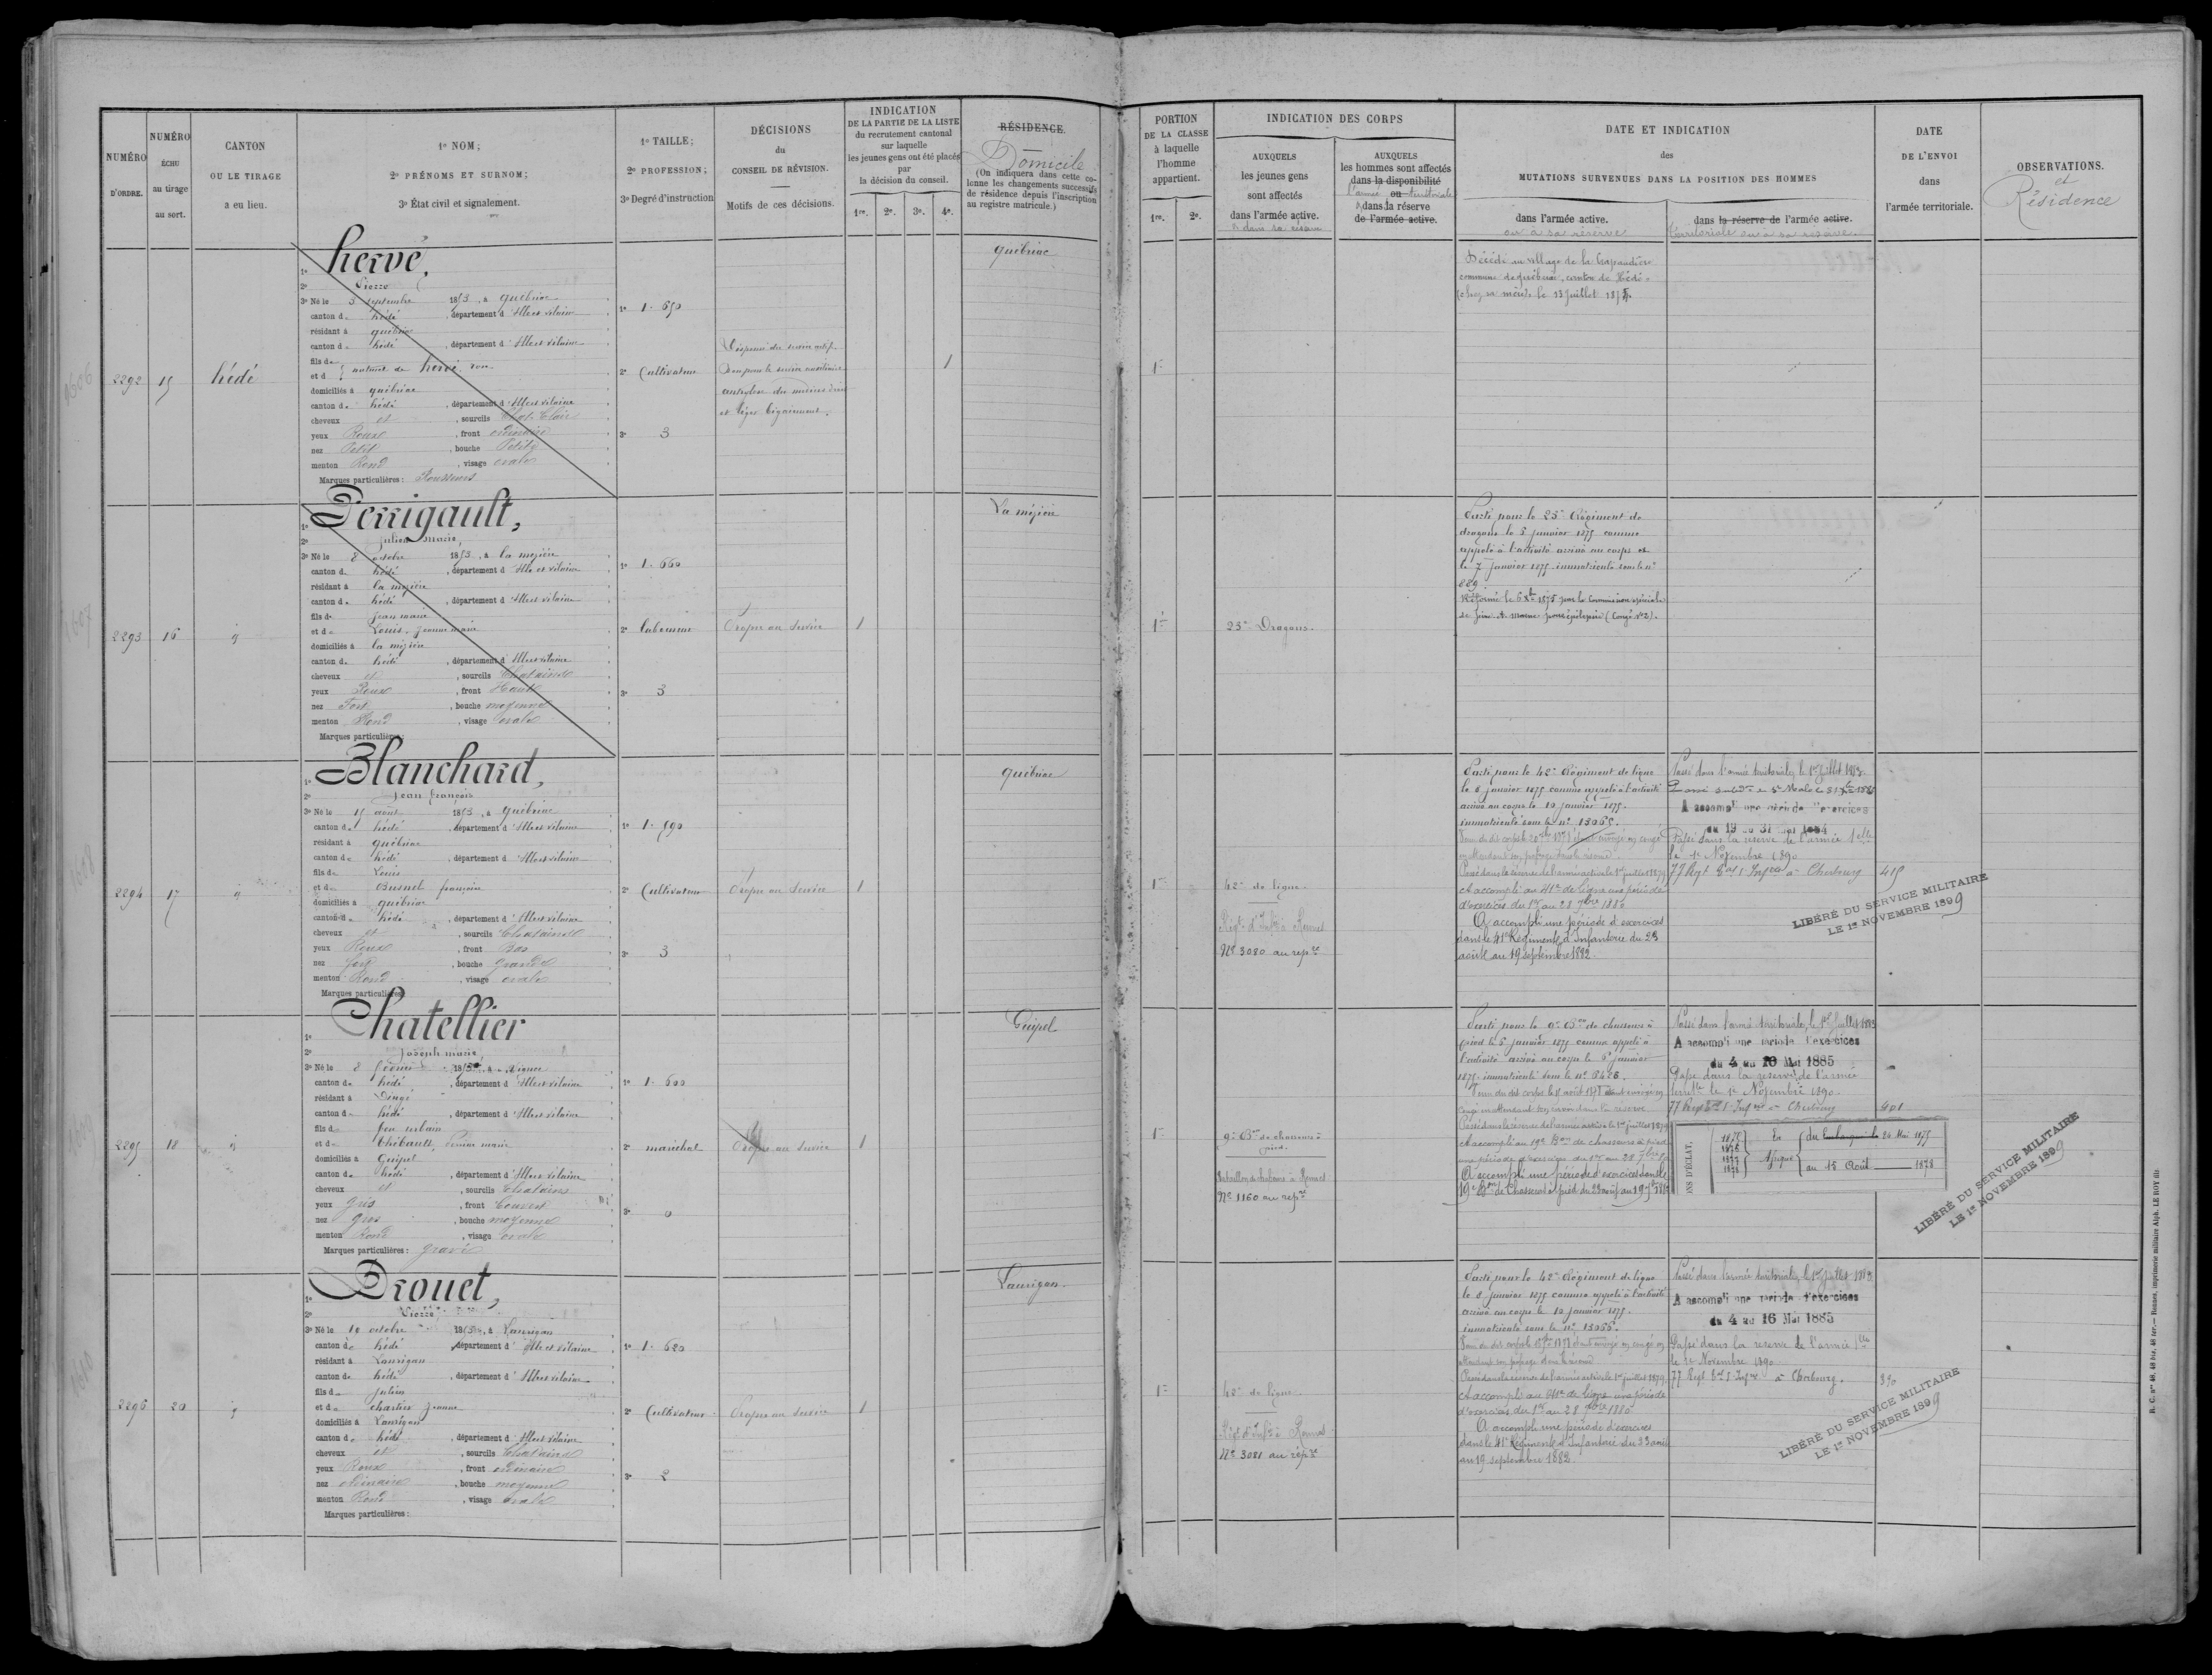 NUMÉRO D'ORDRE.
NUMÉRO ÉCHU au tirage au sort.
CANTON OU LE TIRAGE a eu lieu.
1º NOM;
2º PRÉNOMS ET SURNOM;
3º État civil et signalement.
1º TAILLE;
2º PROFESSION;
3º Degré d'instruction
DÉCISIONS
du
CONSEIL DE RÉVISION.
Motifs de ces décisions.
INDICATION
DE LA PARTIE DE LA LISTE
du recrutement cantonal
sur laquelle
les jeunes gens ont été placés
par
la décision du conseil.
1re. 2e. 3e. 4e.
RÉSIDENCE.
Domicile
(On indiquera dans cette colonne les changements successifs de résidence depuis l'inscription au registre matricule.)
2292
15
hédé
hervé,
1º
2º Pierre
3º Né le 3 septembre 1853, a québriac
canton de hédé, département d'Ille et vilaine
résidant à québriac
canton de hédé, département d'Ille et vilaine
fils de
et d naturel de hervé,
domiciliés à québriac
canton de hédé, département d'Ille et vilaine
cheveux et, sourcils Chat. Clair
yeux Roux, front ordinaire
nez Petit, bouche Petite
menton Rond, visage ovale
Marques particulières: Rousseurs
1º 1. 650
2º Cultivateur
3º 3
Dispensé du service actif
et léger bégaiement.
1
québriac
2293
16
Perrigault,
1º
2º Julien Marie,
3º Né le 8 octobre 1853, a la mézière
canton de hédé, département d'Ille et vilaine
résidant à la mézière
canton de hédé, département d'Ille et vilaine
fils de Jean marie
et de Louis, Jeanne marie
domiciliés à la mézière
canton de hédé, département d'Ille et vilaine
cheveux et, sourcils Chatains
yeux Roux, front Haut
nez Fort, bouche moyenne
menton Rond, visage ovale
Marques particulières:
1º 1. 660
2º laboureur
3º 3
Propre au service
1
La mézière
2294
17
Blanchard,
1º
2º Jean françois
3º Né le 15 août 1853, a québriac
canton de hédé, département d'Ille et vilaine
résidant à québriac
canton de hédé, département d'Ille et vilaine
fils de Louis
et de Busnel françoise
domiciliés à québriac
canton de hédé, département d'Ille et vilaine
cheveux et, sourcils Chatains
yeux Roux, front Bas
nez fort, bouche Grande
menton Rond, visage ovale
Marques particulières
1º 1. 590
2º Cultivateur
3º 3
Propre au service
1
québriac
2295
18
Chatellier
1º
2º Joseph marie,
3º Né le 8 février
canton de hédé, département d'Ille et vilaine
résidant à Dingé
canton de hédé, département d'Ille et vilaine
fils de feu urbain
et de thébault, Perrine marie
domiciliés à Guipel
canton de hédé, département d'Ille et vilaine
cheveux et, sourcils Chatains
yeux gris, front Couvert
nez gros, bouche moyenne
menton Rond, visage ovale
Marques particulières: gravé
1º 1. 600
2º maréchal
3º 0
Propre au service
1
Guipel
2296
20
Drouet,
1º
2º Pierre
3º Né le 19 octobre 1853, a Lanrigan
canton de hédé, département d'Ille et vilaine
résidant à Lanrigan
canton de hédé, département d'Ille et vilaine
fils de Julien
et de chartier Jeanne
domiciliés à Lanrigan
canton de hédé, département d'Ille et vilaine
cheveux et, sourcils Chatains
yeux Roux, front ordinaire
nez ordinaire, bouche moyenne
menton Rond, visage ovale
Marques particulières:
1º 1. 620
2º Cultivateur
3º 2
Propre au service
1
Lanrigan
PORTION
DE LA CLASSE
à laquelle
l'homme
appartient.
1re. 2e.
INDICATION DES CORPS
AUXQUELS
les jeunes gens
sont affectés
dans l'armée active.
& dans sa réserve
AUXQUELS
les hommes sont affectés
dans la disponibilité
l'armée ou territoriale
& dans la réserve
de l'armée active.
DATE ET INDICATION
des
MUTATIONS SURVENUES DANS LA POSITION DES HOMMES
dans l'armée active.
ou à sa réserve
dans la réserve de l'armée active.
territoriale ou à sa réserve.
DATE
DE L'ENVOI
dans
l'armée territoriale.
OBSERVATIONS.
et
Résidence
1re
Décédé au village de la Crapaudière
commune de québriac, canton de Hédé
chez sa mère le 23 Juillet 1875.
1re
23e Dragons.
Parti pour le 23e Régiment de
dragons le 5 Janvier 1875 comme
appelé à l'activité arrivé au corps
le 7 Janvier 1875 immatriculé sous le nº
889.
Réformé le 6 Xbre 1875 par la Commission spéciale
de Seine et marne pour épilepsie (Congé nº 2).
1re
42e de ligne.
Régt d'Infie à Rennes
Nº 3080 au repre
Parti pour le 42e Régiment de ligne
le 8 janvier 1875 comme appelé à l'activité
arrivé au corps le 10 janvier 1875.
immatriculé sous le nº 13065.
Passé dans la réserve de l'armée active le 1er juillet 1879
A accompli au 41e de ligne une période
d'exercices du 1er au 28 7bre 1880
A accompli une période d'exercices
dans le 41e Régiment d'Infanterie du 23
août au 19 septembre 1882.
Passé dans l'armée territoriale le 1er Juillet 1883.
A accompli une période d'exercices
du 19 au 31 mai 1884
Passé dans la réserve de l'armée Telle
le 1er Novembre 1890
77 Regt Tal I. Infrie à Cherbourg
415
LIBÉRÉ DU SERVICE MILITAIRE
LE 1er NOVEMBRE 1899
1re
9e Bon de chasseurs à
pied.
Bataillon de chasseurs à Rennes
Nº 1160 au repre
Parti pour le 9e Bon de chasseurs à
pied le 5 janvier 1875 comme appelé à
l'activité arrivé au corps le 6 janvier
1875. immatriculé sous le nº 6428.
Passé dans la réserve de l'armée active le 1er juillet 1879
A accompli au 19e Bon de chasseurs à pied
une période d'exercices du 1er au 28 7bre 80
A accompli une période d'exercices dans le
19e Bon de Chasseurs à pied du 23 août au 19 7bre 1882
Passé dans l'armée territoriale, le 1er Juillet 1883
A accompli une période d'exercices
du 4 au 16 Mai 1885
Passé dans la réserve de l'armée
terrlle le 1er Novembre 1890.
77 Regt Tal I. Infrie à Cherbourg
401
NS D'ÉCLAT.
1875
1876
1877
1878
En
Afrique
du Embarqué le 24 Mai 1875
au 15 Août 1878
LIBÉRÉ DU SERVICE MILITAIRE
LE 1er NOVEMBRE 1899
1re
42e de ligne.
Régt d'Infie à Rennes
Nº 3081 au repre
Parti pour le 42e Régiment de ligne
le 8 janvier 1875 comme appelé à l'activité
arrivé au corps le 10 janvier 1875.
immatriculé sous le nº 13066.
Passé dans la réserve de l'armée active le 1er juillet 1879
A accompli au 41e de ligne une période
d'exercices du 1er au 28 7bre 1880
A accompli une période d'exercices
dans le 41e Régiment d'Infanterie du 23 août
au 19 septembre 1882
Passé dans l'armée territoriale, le 1er Juillet 1883.
A accompli une période d'exercices
du 4 au 16 Mai 1885
Passé dans la réserve de l'armée Tlle
le 1er Novembre 1890
77 Regt Tal I. Infie à Cherbourg.
390
LIBÉRÉ DU SERVICE MILITAIRE
LE 1er NOVEMBRE 1899
Rennes, imprimerie militaire Alph. LE ROY fils
1606
1607
1608
1610